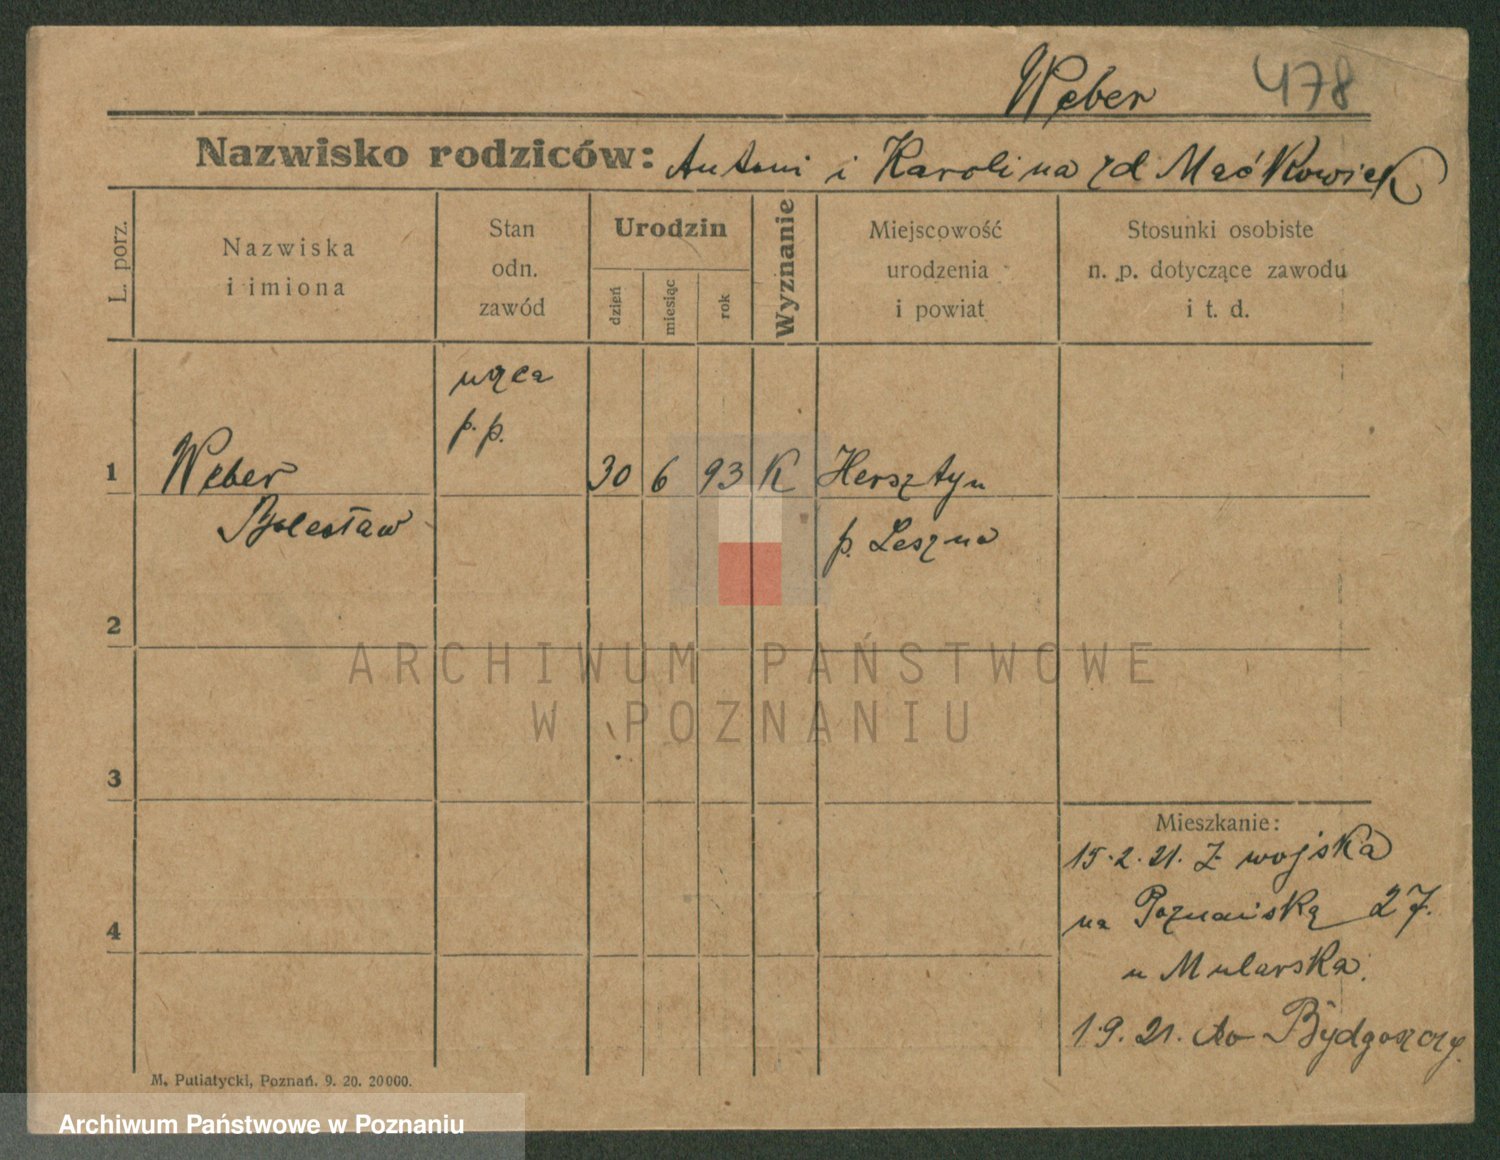 Weber 478
Nazwisko rodziców: Antoni i Karolina zd Maćkowiak
L. porz.
Nazwiska
i imiona
Stan
odn.
zawód
Urodzin
dzień
miesiąc
rok
Wyznanie
Miejscowość
urodzenia
i powiat
Stosunki osobiste
n. p. dotyczące zawodu
i t. d.
p. p.
1 Weber 30 6 93 K Hersztyn
Bolesław p. Leszno
2
ARCHIWUM PAŃSTWOWE
W POZNANIU
3
Mieszkanie:
15.2.21. Z wojska
na Poznańską 27.
4
u Mularska.
1.9.21. do Bydgoszczy.
M. Putiatycki, Poznań. 9. 20. 20000.
Archiwum Państwowe w Poznaniu